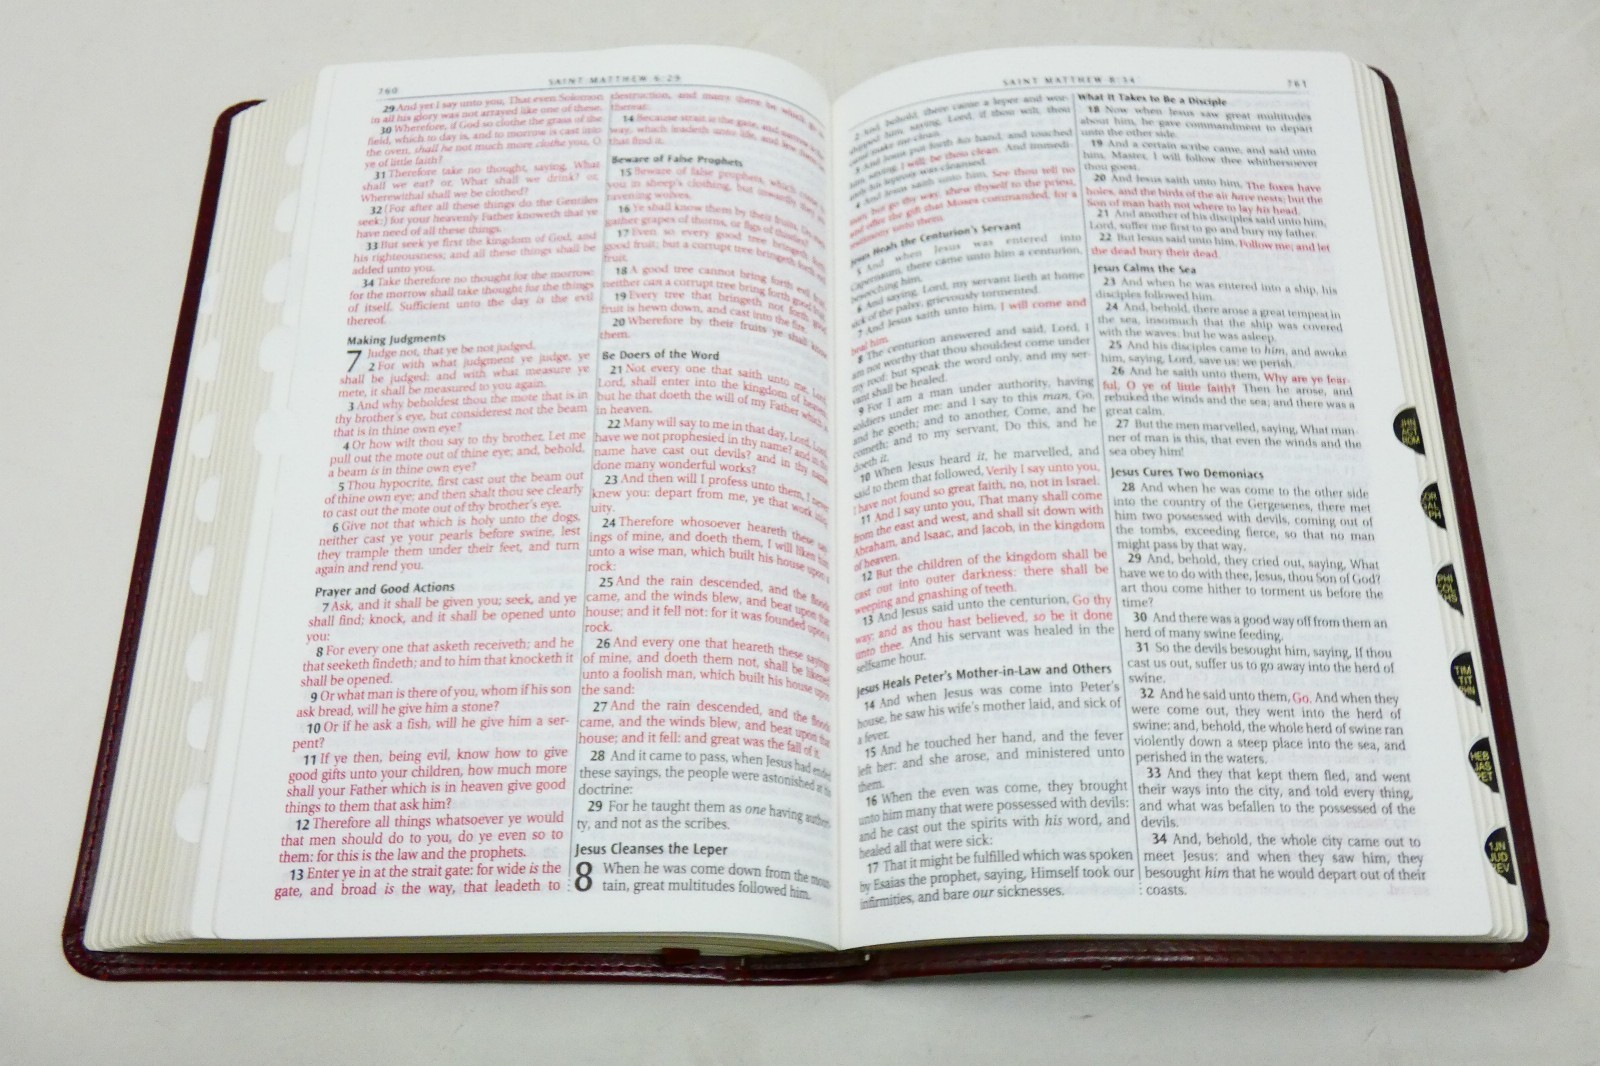 760
SAINT MATTHEW 6:29
29 And yet I say unto you, That even Solomon
in all his glory was not arrayed like one of these.
30 Wherefore, if God so clothe the grass of the
field, which to day is, and to morrow is cast into
the oven, shall he not much more clothe you, O
ye of little faith?
31 Therefore take no thought, saying, What
shall we eat? or, What shall we drink? or,
Wherewithal shall we be clothed?
32 (For after all these things do the Gentiles
seek:) for your heavenly Father knoweth that ye
have need of all these things.
33 But seek ye first the kingdom of God, and
his righteousness; and all these things shall be
added unto you.
34 Take therefore no thought for the morrow:
for the morrow shall take thought for the things
of itself. Sufficient unto the day is the evil
thereof.
Making Judgments
7 Judge not, that ye be not judged.
2 For with what judgment ye judge, ye
shall be judged: and with what measure ye
mete, it shall be measured to you again.
3 And why beholdest thou the mote that is in
thy brother's eye, but considerest not the beam
that is in thine own eye?
4 Or how wilt thou say to thy brother, Let me
pull out the mote out of thine eye; and, behold,
a beam is in thine own eye?
5 Thou hypocrite, first cast out the beam out
of thine own eye; and then shalt thou see clearly
to cast out the mote out of thy brother's eye.
6 Give not that which is holy unto the dogs,
neither cast ye your pearls before swine, lest
they trample them under their feet, and turn
again and rend you.
Prayer and Good Actions
7 Ask, and it shall be given you; seek, and ye
shall find; knock, and it shall be opened unto
you:
8 For every one that asketh receiveth; and he
that seeketh findeth; and to him that knocketh it
shall be opened.
9 Or what man is there of you, whom if his son
ask bread, will he give him a stone?
10 Or if he ask a fish, will he give him a ser-
pent?
11 If ye then, being evil, know how to give
good gifts unto your children, how much more
shall your Father which is in heaven give good
things to them that ask him?
12 Therefore all things whatsoever ye would
that men should do to you, do ye even so to
them: for this is the law and the prophets.
13 Enter ye in at the strait gate: for wide is the
gate, and broad is the way, that leadeth to
destruction, and many there be which go in
thereat:
14 Because strait is the gate, and narrow is the
way, which leadeth unto life, and few there be
that find it.
Beware of False Prophets
15 Beware of false prophets, which come to
you in sheep's clothing, but inwardly they are
ravening wolves.
16 Ye shall know them by their fruits. Do men
gather grapes of thorns, or figs of thistles?
17 Even so every good tree bringeth forth
good fruit; but a corrupt tree bringeth forth evil
fruit.
18 A good tree cannot bring forth evil fruit,
neither can a corrupt tree bring forth good fruit.
19 Every tree that bringeth not forth good
fruit is hewn down, and cast into the fire.
20 Wherefore by their fruits ye shall know
them.
Be Doers of the Word
21 Not every one that saith unto me, Lord,
Lord, shall enter into the kingdom of heaven;
but he that doeth the will of my Father which is
in heaven.
22 Many will say to me in that day, Lord, Lord,
have we not prophesied in thy name? and in thy
name have cast out devils? and in thy name
done many wonderful works?
23 And then will I profess unto them, I never
knew you: depart from me, ye that work iniq-
uity.
24 Therefore whosoever heareth these say-
ings of mine, and doeth them, I will liken him
unto a wise man, which built his house upon a
rock:
25 And the rain descended, and the floods
came, and the winds blew, and beat upon that
house; and it fell not: for it was founded upon a
rock.
26 And every one that heareth these sayings
of mine, and doeth them not, shall be likened
unto a foolish man, which built his house upon
the sand:
27 And the rain descended, and the floods
came, and the winds blew, and beat upon that
house; and it fell: and great was the fall of it.
28 And it came to pass, when Jesus had ended
these sayings, the people were astonished at his
doctrine:
29 For he taught them as one having authori-
ty, and not as the scribes.
Jesus Cleanses the Leper
8 When he was come down from the moun-
tain, great multitudes followed him.
SAINT MATTHEW 8:34
761
2 And, behold, there came a leper and wor-
shipped him, saying, Lord, if thou wilt, thou
canst make me clean.
3 And Jesus put forth his hand, and touched
him, saying, I will; be thou clean. And immedi-
ately his leprosy was cleansed.
4 And Jesus saith unto him, See thou tell no
man; but go thy way, shew thyself to the priest,
and offer the gift that Moses commanded, for a
testimony unto them.
Jesus Heals the Centurion's Servant
5 And when Jesus was entered into
Capernaum, there came unto him a centurion,
beseeching him,
6 And saying, Lord, my servant lieth at home
sick of the palsy, grievously tormented.
7 And Jesus saith unto him, I will come and
heal him.
8 The centurion answered and said, Lord, I
am not worthy that thou shouldest come under
my roof: but speak the word only, and my ser-
vant shall be healed.
9 For I am a man under authority, having
soldiers under me: and I say to this man, Go,
and he goeth; and to another, Come, and he
cometh; and to my servant, Do this, and he
doeth it.
10 When Jesus heard it, he marvelled, and
said to them that followed, Verily I say unto you,
I have not found so great faith, no, not in Israel.
11 And I say unto you, That many shall come
from the east and west, and shall sit down with
Abraham, and Isaac, and Jacob, in the kingdom
of heaven.
12 But the children of the kingdom shall be
cast out into outer darkness: there shall be
weeping and gnashing of teeth.
13 And Jesus said unto the centurion, Go thy
way; and as thou hast believed, so be it done
unto thee. And his servant was healed in the
selfsame hour.
Jesus Heals Peter's Mother-in-Law and Others
14 And when Jesus was come into Peter's
house, he saw his wife's mother laid, and sick of
a fever.
15 And he touched her hand, and the fever
left her: and she arose, and ministered unto
them.
16 When the even was come, they brought
unto him many that were possessed with devils:
and he cast out the spirits with his word, and
healed all that were sick:
17 That it might be fulfilled which was spoken
by Esaias the prophet, saying, Himself took our
infirmities, and bare our sicknesses.
What It Takes to Be a Disciple
18 Now when Jesus saw great multitudes
about him, he gave commandment to depart
unto the other side.
19 And a certain scribe came, and said unto
him, Master, I will follow thee whithersoever
thou goest.
20 And Jesus saith unto him, The foxes have
holes, and the birds of the air have nests; but the
Son of man hath not where to lay his head.
21 And another of his disciples said unto him,
Lord, suffer me first to go and bury my father.
22 But Jesus said unto him, Follow me; and let
the dead bury their dead.
Jesus Calms the Sea
23 And when he was entered into a ship, his
disciples followed him.
24 And, behold, there arose a great tempest in
the sea, insomuch that the ship was covered
with the waves: but he was asleep.
25 And his disciples came to him, and awoke
him, saying, Lord, save us: we perish.
26 And he saith unto them, Why are ye fear-
ful, O ye of little faith? Then he arose, and
rebuked the winds and the sea; and there was a
great calm.
27 But the men marvelled, saying, What man-
ner of man is this, that even the winds and the
sea obey him!
Jesus Cures Two Demoniacs
28 And when he was come to the other side
into the country of the Gergesenes, there met
him two possessed with devils, coming out of
the tombs, exceeding fierce, so that no man
might pass by that way.
29 And, behold, they cried out, saying, What
have we to do with thee, Jesus, thou Son of God?
art thou come hither to torment us before the
time?
30 And there was a good way off from them an
herd of many swine feeding.
31 So the devils besought him, saying, If thou
cast us out, suffer us to go away into the herd of
swine.
32 And he said unto them, Go. And when they
were come out, they went into the herd of
swine: and, behold, the whole herd of swine ran
violently down a steep place into the sea, and
perished in the waters.
33 And they that kept them fled, and went
their ways into the city, and told every thing,
and what was befallen to the possessed of the
devils.
34 And, behold, the whole city came out to
meet Jesus: and when they saw him, they
besought him that he would depart out of their
coasts.
JHN
ACT
ROM
COR
GAL
EPH
PHI
COL
THS
TIM
TIT
PHN
HEB
JAS
PET
1JN
JUD
REV